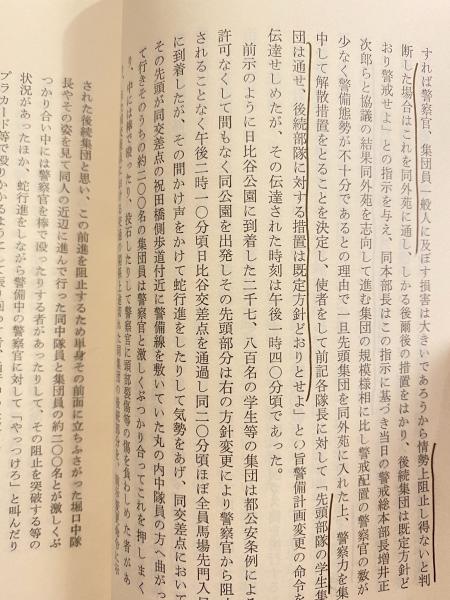 すれば警察官、集団員一般人に及ぼす損害は大きいであろうから情勢上阻止し得ないと判
断した場合はこれを同外苑に通し、しかる後爾後の措置をはかり、後続集団は既定方針ど
おり警戒せよ」との指示を与え、同本部長はこの指示に基づき当日の警戒総本部長増井正
次郎らと協議の結果同外苑を志向して進む集団の規模様相に比し警戒配置の警察官の数が
少なく警備態勢が不十分であるとの理由で一旦先頭集団を同外苑に入れた上、警察力を集
中して解散措置をとることを決定し、使者をして前記各隊長に対して「先頭部隊の学生集
団は通せ、後続部隊に対する措置は既定方針どおりとせよ」との旨警備計画変更の命令を
伝達せしめたが、その伝達された時刻は午後一時四〇分頃であった。
前示のように日比谷公園に到着した二千七、八百名の学生等の集団は都公安条例による
許可なくして間もなく同公園を出発しその先頭部分は右の方針変更により警察官から阻
されることなく午後二時一〇分頃日比谷交差点を通過し同二〇分頃ほぼ全員馬場先門入
に到着したが、その間かけ声をかけて蛇行進をしたりして気勢をあげ、同交差点において
その先頭が同交差点の祝田橋側歩道付近に警備線を敷いていた丸の内中隊員の方へ曲がっ
て行きそのうちの約二〇〇名の集団員は警察官と激しくぶつかり合ってこれを押しまく
り、中には棒で殴ったり、投石したりして警察官に頭部裂傷等の傷を負わしめた者があ
された後続集団と思い、この前進を阻止するため単身その前面に立ちふさがった堀口中隊
長やその姿を見て同人の近辺に進んで行った同中隊員と集団員の約二〇〇名とが激しくぶ
つかり合い中には警察官を棒で殴ったりする者があったりして、その阻止を突破する等の
状況があったほか、蛇行進をしながら警備中の警察官に対して「やっつけろ」と叫んだり
プラカード等で殴りかかるようにして振り回